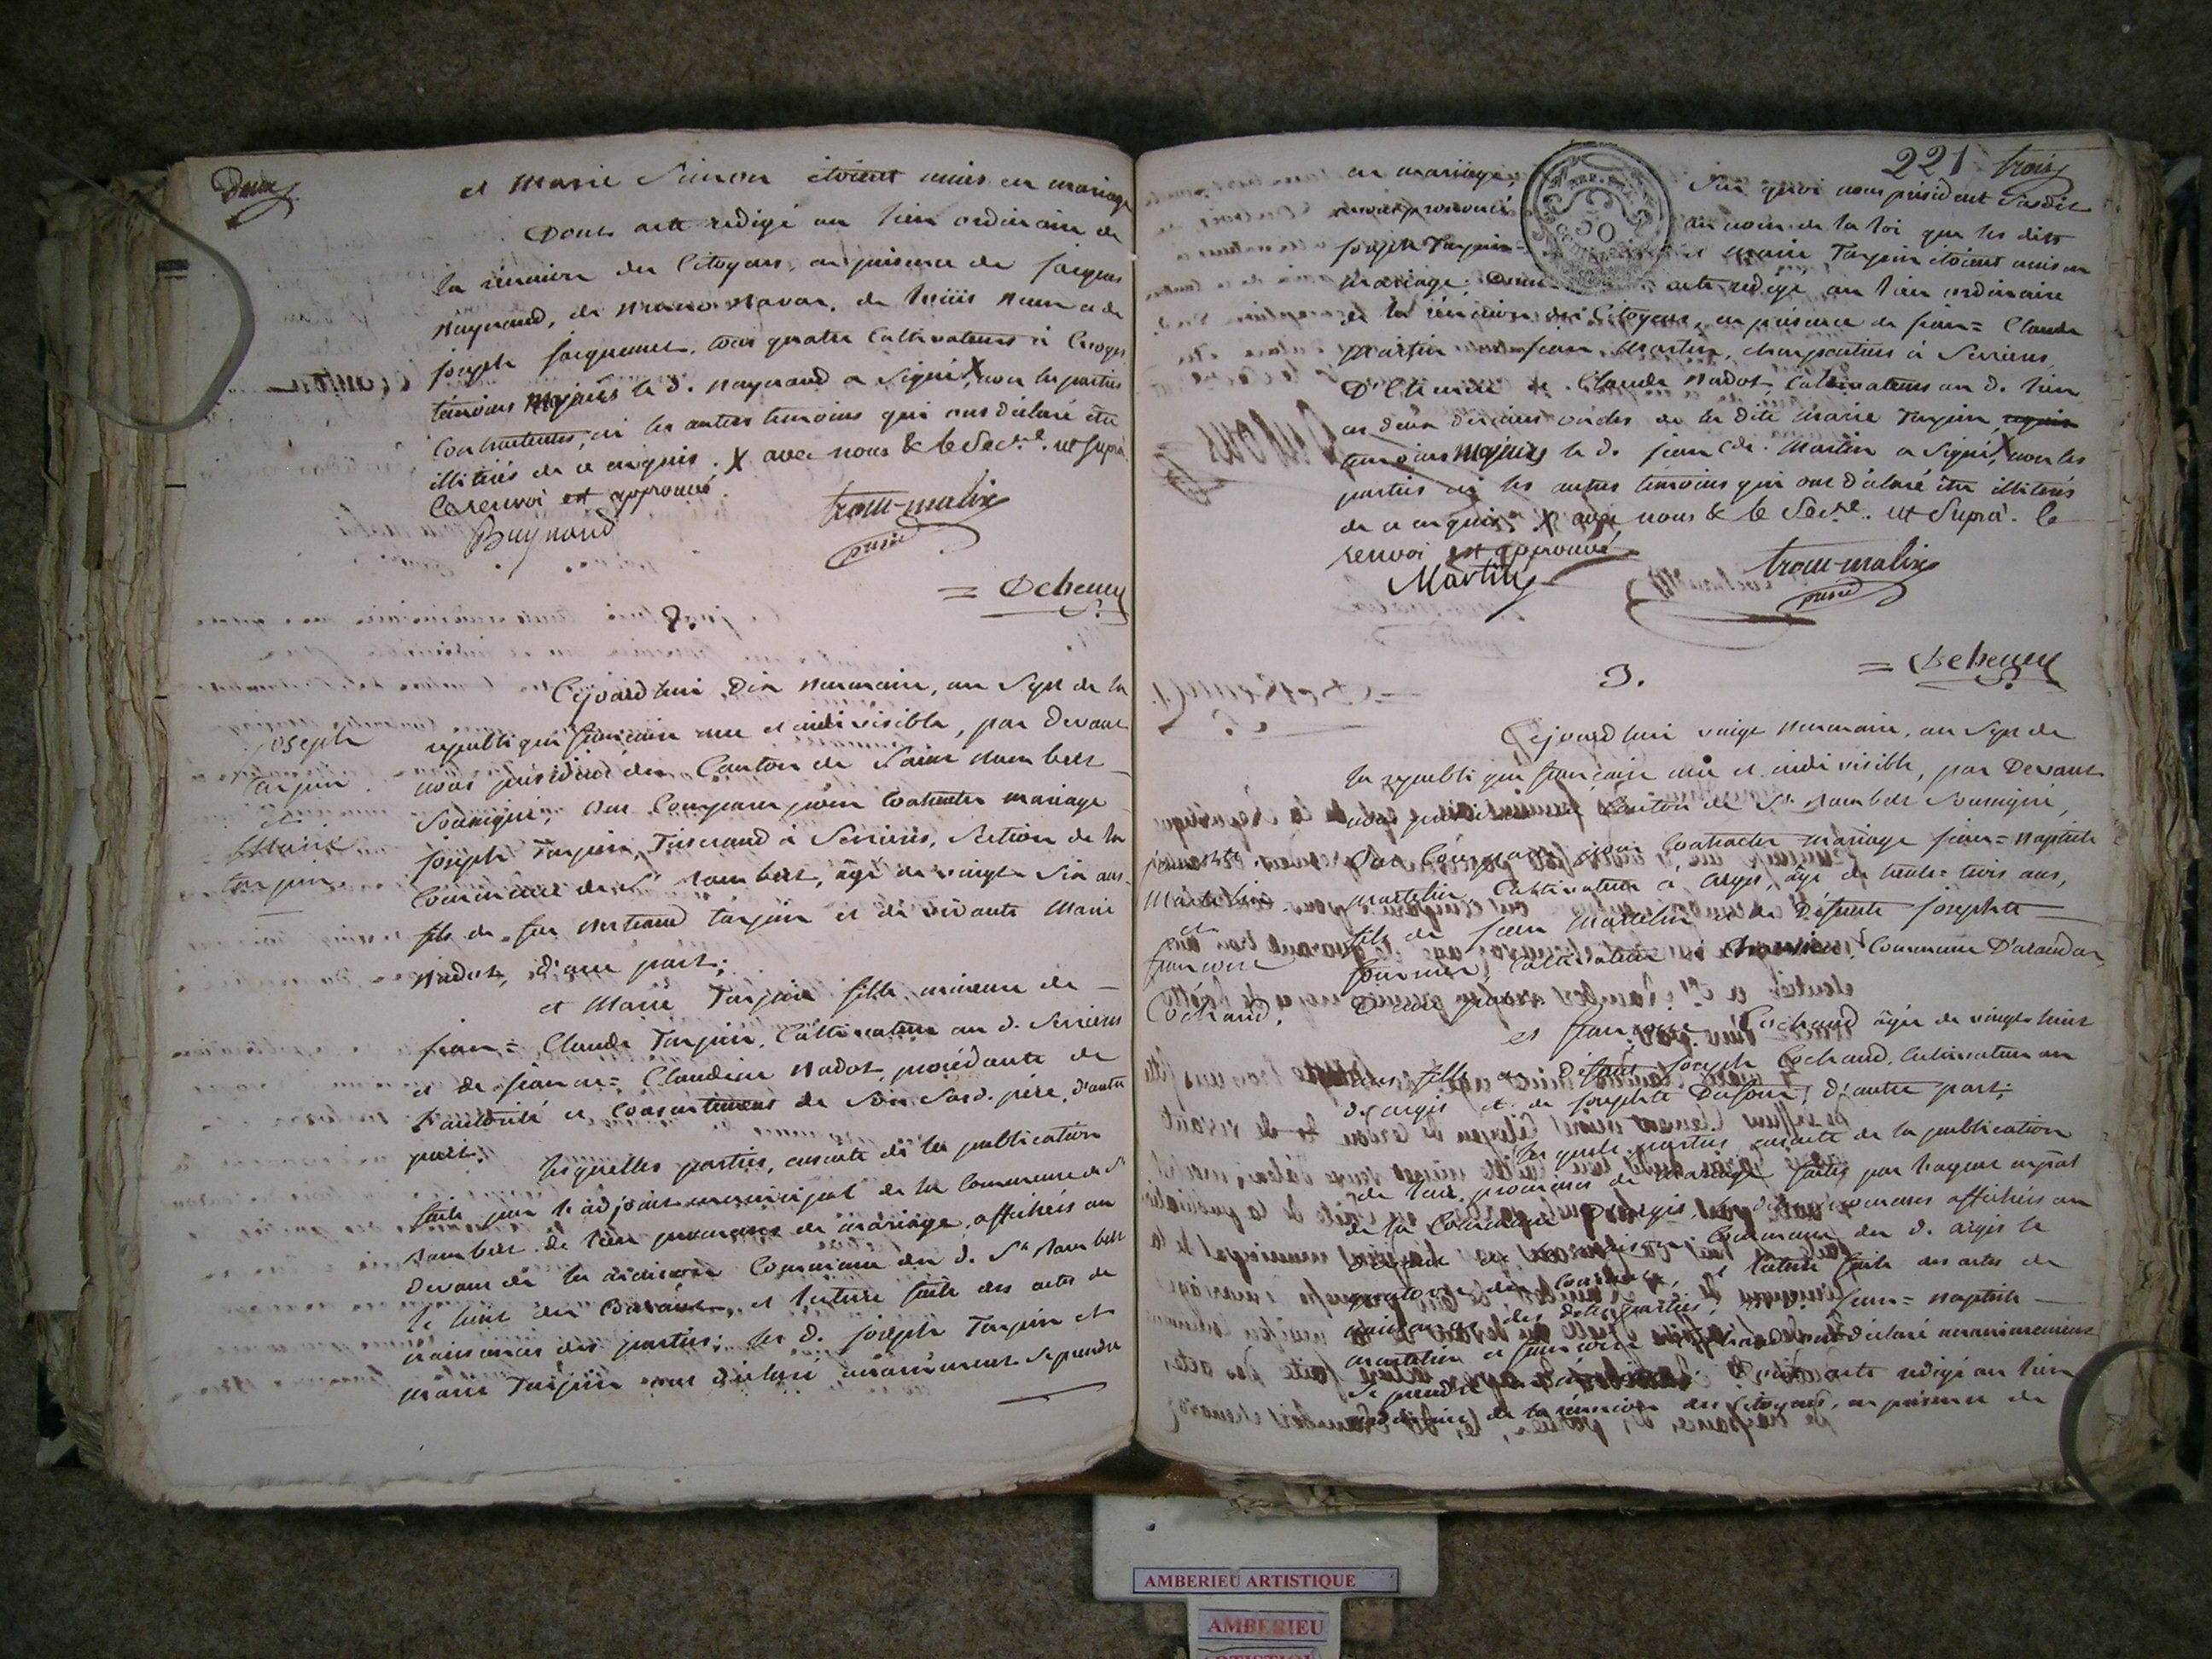 Deux
et Marie Simon étoient unis en mariage
Dont acte redigé au lieu ordinaire de
la réunion des Citoyens, en présence de jacques
joseph jacquemet, tous quatre Cultivateurs à
témoins majeurs le d. a signé X non les parties
Contractantes, ni les autres temoins qui ont déclaré être
illitérés de ce enquis. X avec nous & le Secre. ut Suprà.
le renvoi est approuvé.
trou-malin
présid
= Debeney
S.
2.
joseph
tarpin
et
Marie
tarpin
Cejourd'hui Dix Nivose, an Sept de la
republique française une et indivisible, par Devant
nous président du Canton de Saint Rambert
Soussigné, ont Comparu pour Contracter mariage
joseph Tarpin, Tisserand à Serrieres, Section de la
Commune de St Rambert, âgé de vingt Six ans,
fils de feu Bertrand tarpin et de vivante Marie
Nadot, d'une part;
et Marie Tarpin fille mineure de
jean = Claude Tarpin, Cultivateur au d. Serrieres
et de jeanne = Claudine Nadot, procédante de
l'autorité et Consentement de Son Susd. père, d'autre
part.
lesquelles parties, ensuite de la publication
faite par l'adjoint municipal de la Commune de St
Rambert de leur promesses de mariage, affichées au
Devant de la maison Commune du d. St Rambert
le huit du Courant, et lecture faite des actes de
naissances des parties; les d. joseph Tarpin et
marie Tarpin ont déclaré unanimement Se prendre
221 trois
en mariage, Sur quoi nous président Susdit
avons prononcé au nom de la loi que les dits
joseph Tarpin et Marie Tarpin étoient unis en
Mariage; Dont acte redigé au lieu ordinaire
de la réunion des Citoyens, en présence de jean = Claude
Martin jean Martin, charpentiers à Serrieres
D'Etienne & Claude Nadot, Cultivateurs au d. lieu
ces deux derniers oncles de la dite Marie Tarpin,
temoins majeurs le d. jean Cde. Martin a Signé X non les
parties ni les autres temoins qui ont déclaré être illitérés
de ce enquis X avec nous & le Secre. ut Suprà. le
renvoi est approuvé
Martin
trou-malin
présid
= Debeney
S.
3.
Martelin
et
francoise
Cochand.
Cejourd'hui vingt Nivose, an Sept de
la republique française une et indivisible, par Devant
nous président du Canton de St Rambert Soussigné,
ont Comparu pour Contracter mariage jean = Baptiste
Martelin, Cultivateur à Argis, âgé de trente = trois ans,
fils de jean Martelin et de Défunte josephte
fournier, Cultivateur à Commune D'arandas
D'une part;
et françoise Cochand âgée de vingt huit
ans fille de Défunt joseph Cochand, Cultivateur au
d. argis et de josephte Dufour, d'autre part;
lesquelles parties, ensuite de la publication
de leur promesses de mariage faite par l'agent mpal
de la Commune D'argis, les dites promesses affichées au
Devant de la maison Commune du d. argis le
quatorze du Courant, et lecture faite des actes de
naissances des dites parties; jean = Baptiste
Martelin et francoise Cochand ont déclaré unanimement
Se prendre en mariage Dont acte redigé au lieu
ordinaire de la réunion des Citoyens, en présence de
AMBERIEU ARTISTIQUE
AMBERIEU